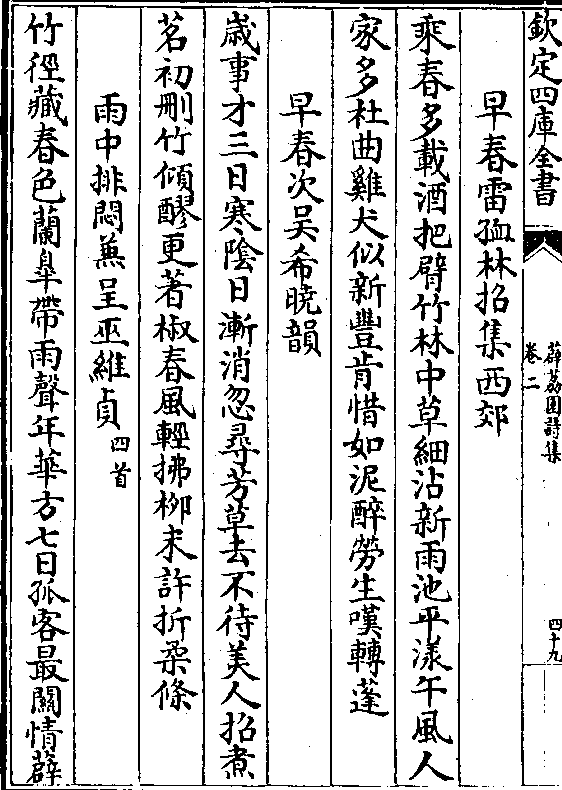 欽定四庫全書
薜荔園詩集
卷二
四十九
早春雷孤林招集西郊
乘春多載酒把臂竹林中草細沾新雨池平漾午風人
家多杜曲雞犬似新豐肯惜如泥醉勞生嘆轉蓬
早春次吳希曉韻
歲事才三日寒陰日漸消忽尋芳草去不待美人招煮
茗初刪竹傾醪更著椒春風輕拂柳未許折柔條
雨中排悶兼呈巫維貞四首
竹徑藏春色蘭臯帶雨聲年華方七日孤客最關情薜